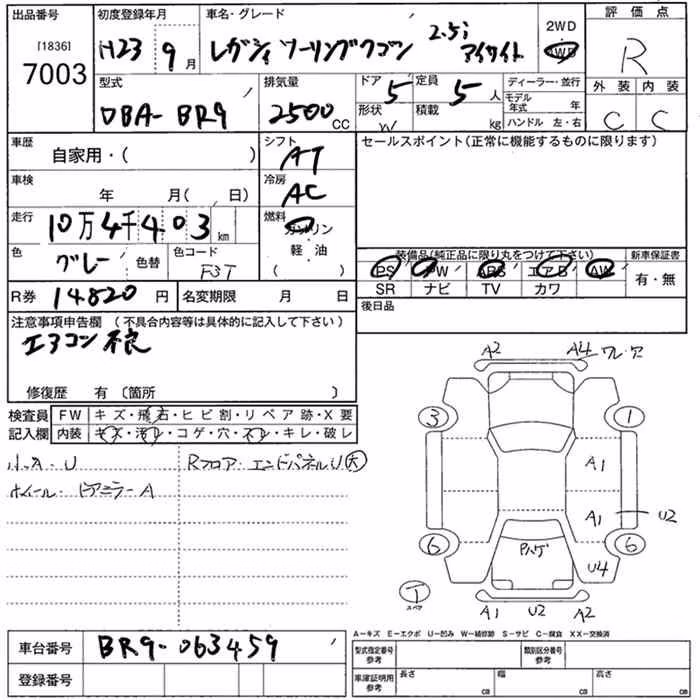 出品番号 初度登録年月 車名・グレード 評価点
[1836] 7003 H23 9月 レガシィ ツーリングワゴン 2.5i アイサイト 2WD 4WD R
型式 排気量 ドア 定員 ディーラー・並行 外装 内装
DBA-BR9 2500CC 5 5人 モデル年式 年 C C
形状 W 積載 kg ハンドル 左・右
車歴 自家用・( ) シフト AT セールスポイント(正常に機能するものに限ります)
車検 年 月( 日) 冷房 AC
走行 10万4千403km 燃料 ガソリン
色 グレー 色替 色コード F3T 軽・油 ( )
装備品(純正品に限り丸をつけて下さい) 新車保証書
PS PW ABS エアB AW 有・無
SR ナビ TV カワ
R券 14820円 名変期限 月 日 後日品
注意事項申告欄 (不具合内容等は具体的に記入して下さい)
エアコン 不良
修復歴 有 〔箇所 〕
検査員記入欄 FW キズ・飛石・ヒビ割・リペア跡・X要
内装 キズ・汚レ・コゲ・穴・スレ・キレ・破レ
小キズA・U Rフロア・エンドパネルU大
ホイール・ドアミラーA
A2 A4 ワレ・穴
3 1
A1
A1 U2
6 6
Pハゲ U4
T スペア
A1 U2 A2
車台番号 BR9-063459
登録番号
A-キズ E-エクボ U-凹み W-補修跡 S-サビ C-腐食 XX-交換済
型式指定番号 参考 類別区分番号 参考
車庫証明用 参考 長さ cm 幅 cm 高さ cm